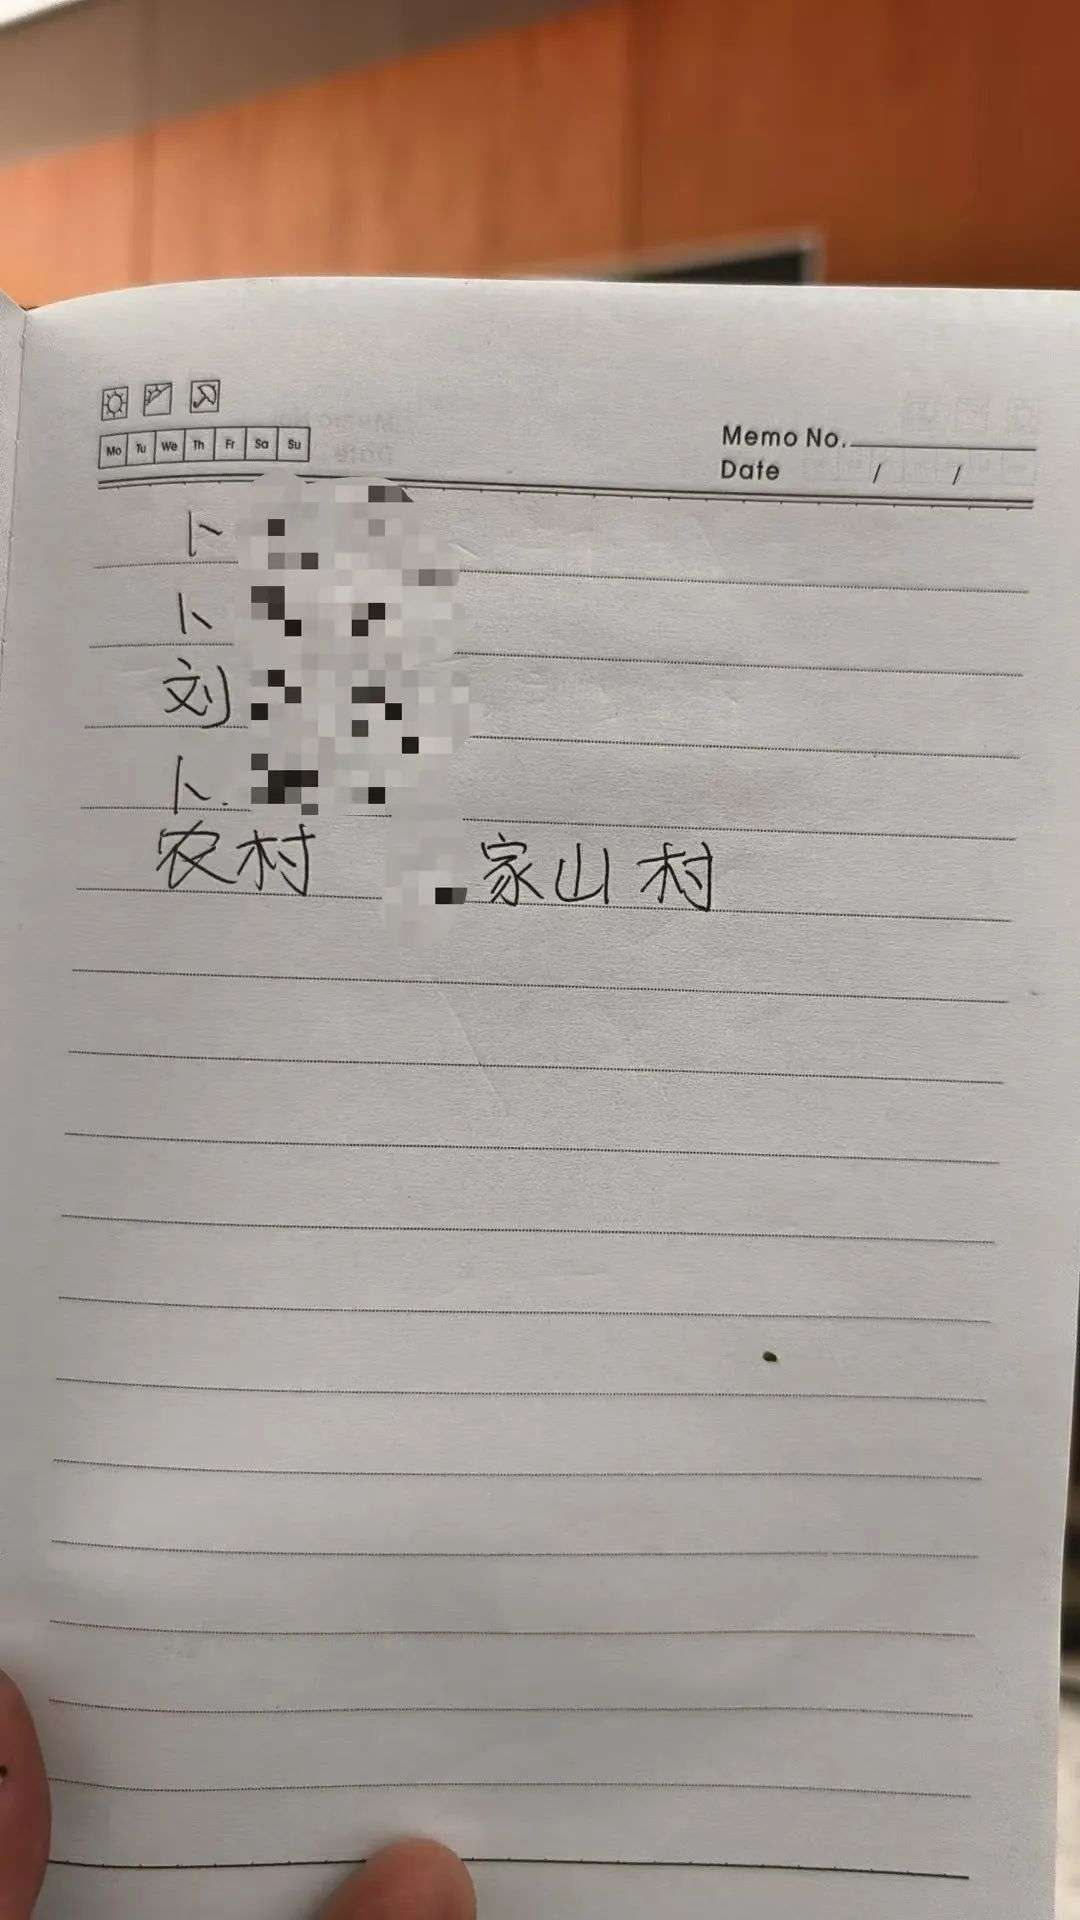 Mo Tu We Th Fr Sa Su
Memo No.
Date / /
卜
卜
刘
卜.
农村 家山村